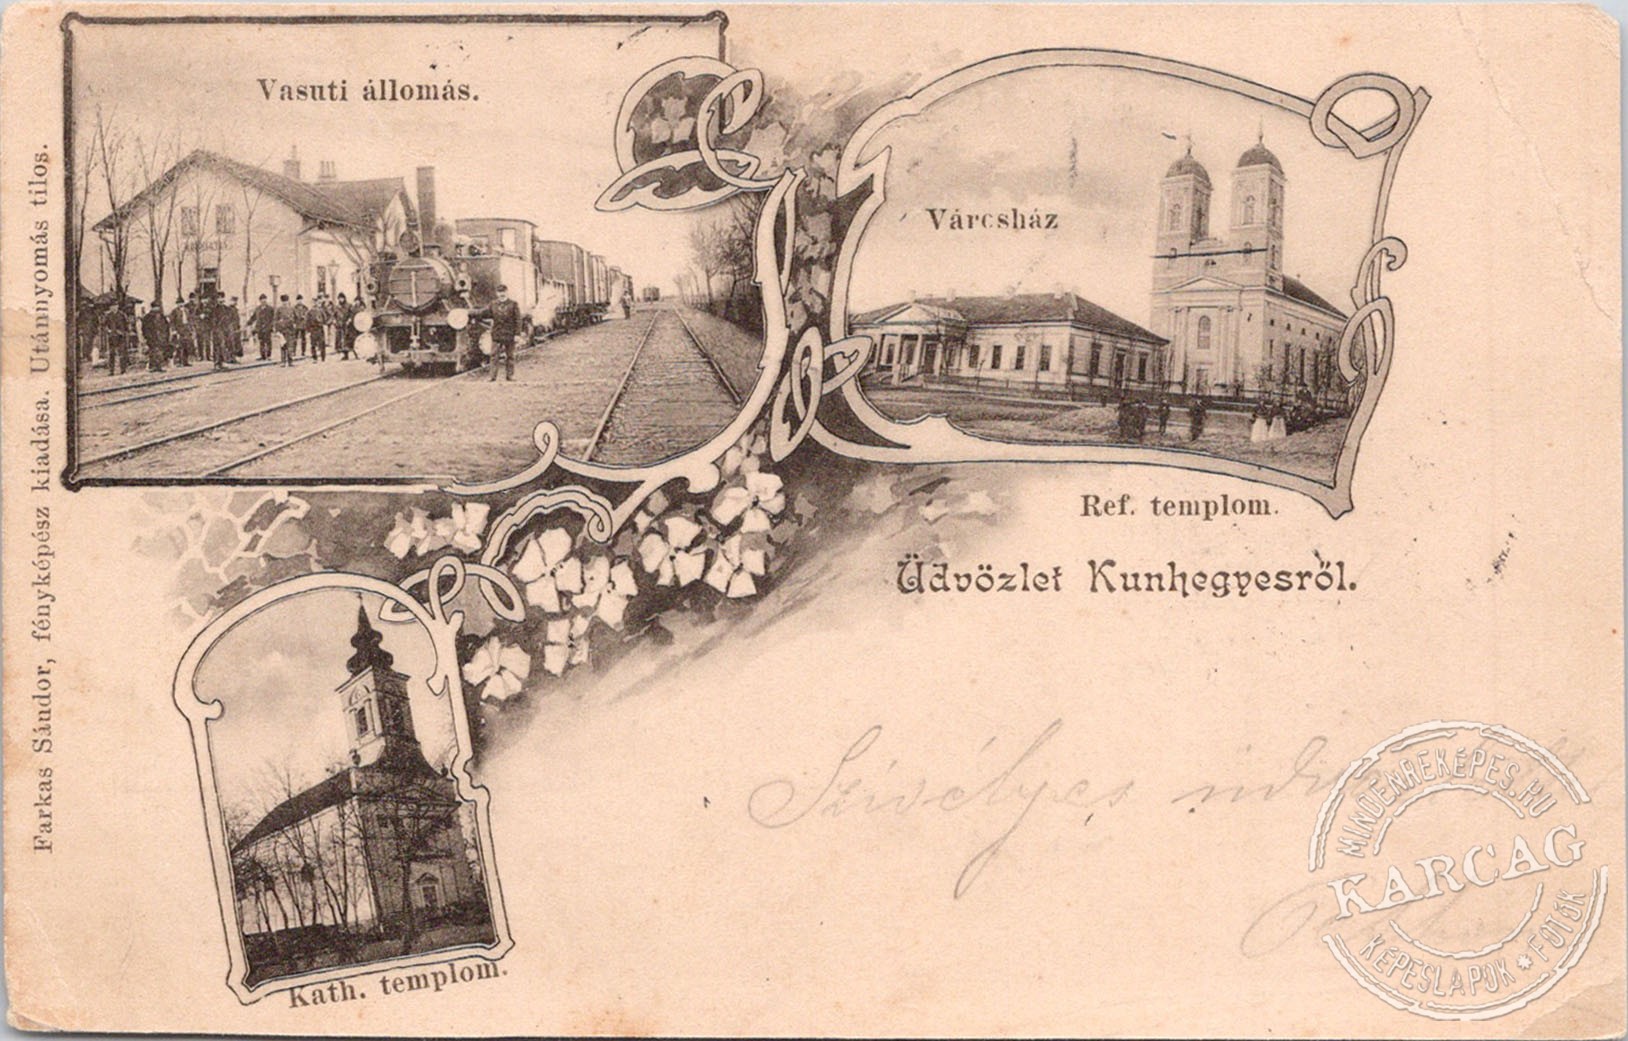 Vasuti állomás.
Várcsház
Ref. templom.
Üdvözlet Kunhegyesről.
Kath. templom.
Farkas Sándor, fényképész kiadása. Utánnyomás tilos.
Szivélyes
MINDENREKÉPES.HU
KARCAG
KÉPESLAPOK * FOTÓK